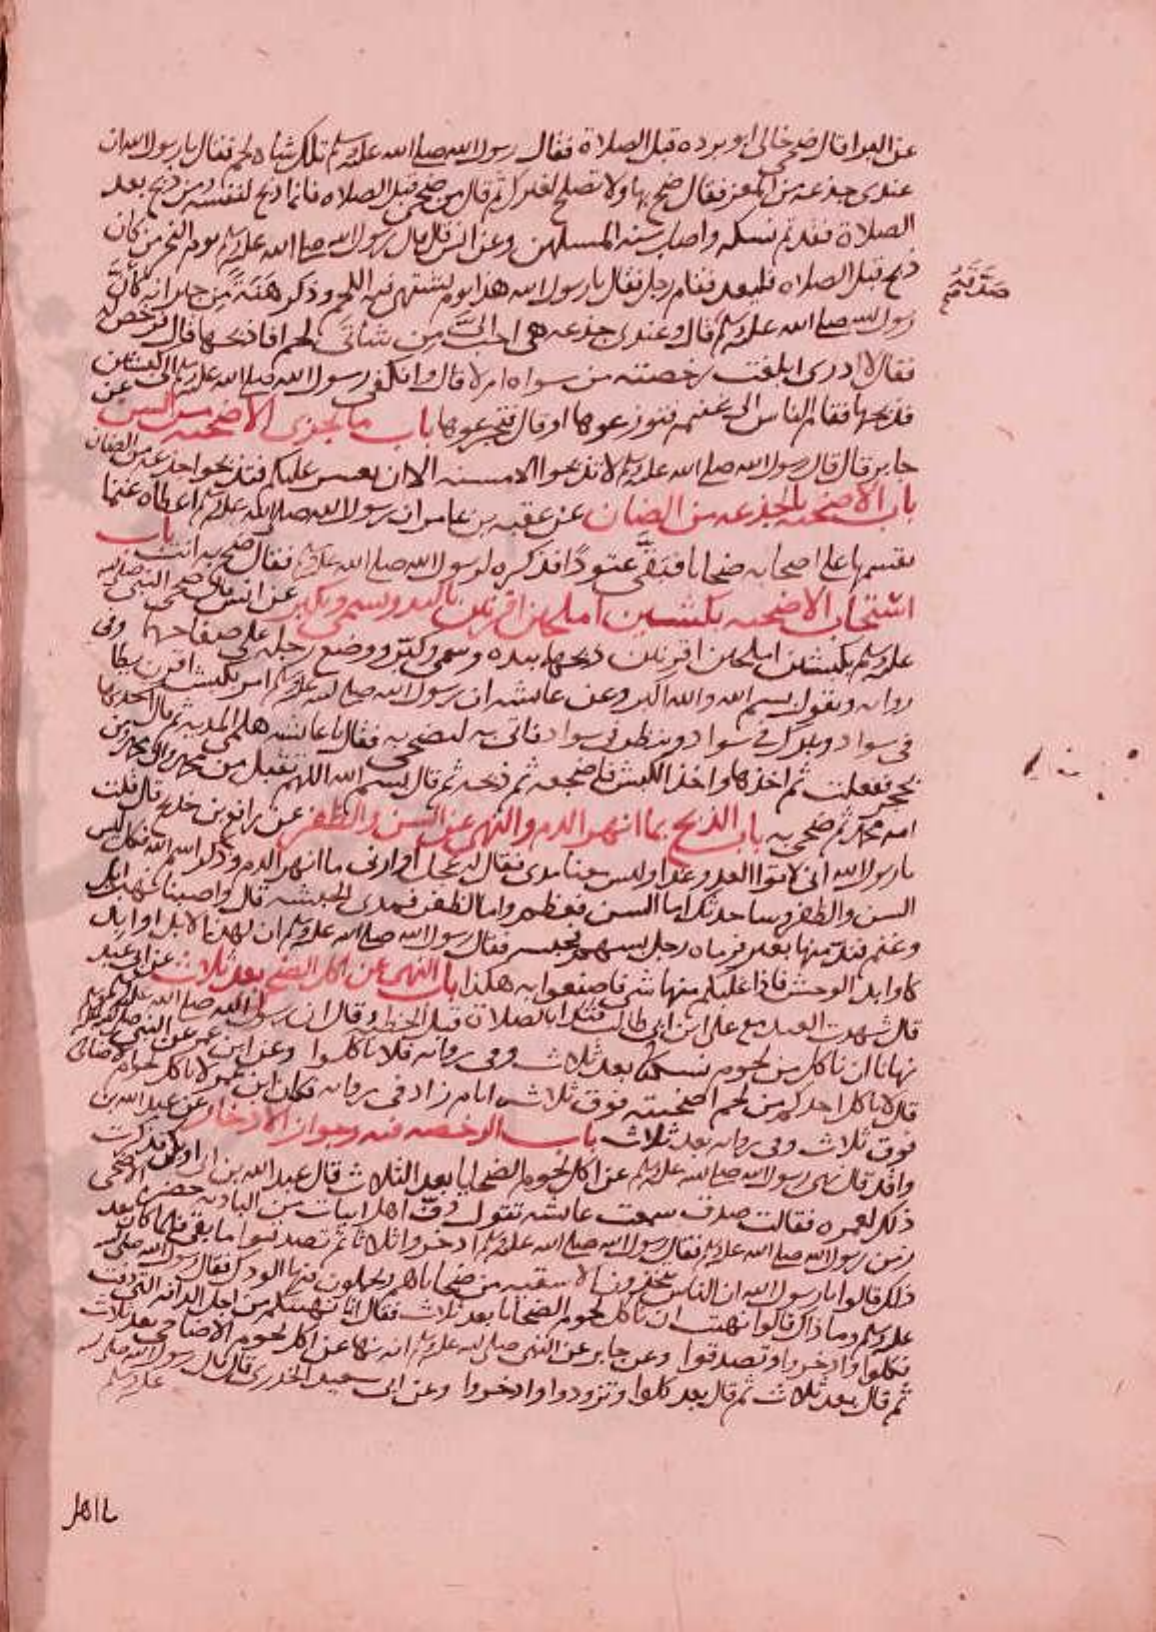 عن البرا قال ضحى خالى ابو برده قبل الصلاة فقال رسول الله صلى الله عليه وسلم تلك شاة لحم فقال يا رسول الله ان
عندى جذعه من المعز فقال ضح بها ولا تصلح لغيرك ثم قال من ضحى قبل الصلاه فانما ذبح لنفسه ومن ذبح بعد
الصلاة فقد تم نسكه واصاب سنه المسلمين وعن انس قال قال رسول الله صلى الله عليه وسلم يوم النحر من كان
ذبح قبل الصلاه فليعد فقام رجل فقال يا رسول الله هذا يوم يشتهى فيه اللحم وذكر هَنَةً من جيرانه كأنَّ
صَدَّقَهُ
رسول الله صلى الله عليه وسلم قال وعندى جذعه هى احب الىَّ من شاتَى لحم افاذبحها قال فرخص له
فقال لا ادرى ابلغت رخصته من سواه ام لا قال وانكفى رسول الله صلى الله عليه وسلم الى كبشين
فذبحهما فقام الناس الى غنيمه فتوزعوها او قال فتجزعوها باب ما يجزى الاضحيه من السن عن
جابر قال قال رسول الله صلى الله عليه وسلم لا تذبحوا الا مسنه الا ان يعسر عليكم فتذبحوا جذعه من الضان
باب الاضحيه بالجذعه من الضان عن عقبه بن عامر ان رسول الله صلى الله عليه وسلم اعطاه غنما
يقسمها على اصحابه ضحايا فبقى عتودًا فذكره لرسول الله صلى الله عليه وسلم فقال ضح به انت باب
استحباب الاضحيه بكبشين املحين اقرنين وسمى وتكبير عن انس قال ضحى النبى صلى الله
عليه وسلم بكبشين املحين اقرنين ذبحهما بيده وسمى وكبّر ووضع رجله على صفاحهما وفى
روايه ويقول بسم الله والله اكبر وعن عائشه ان رسول الله صلى الله عليه وسلم امر بكبش اقرن يطا
فى سواد ويبرك فى سواد وينظر فى سواد فاتى به ليضحى به فقال يا عائشه هلمى المديه ثم قال اشحذيها
بحجر ففعلت ثم اخذها واخذ الكبش فاضجعه ثم ذبحه ثم قال بسم الله اللهم تقبل من محمد وال محمد ومن
امه محمد ثم ضحى به باب الذبح بما انهر الدم والنهى عن السن والظفر عن رافع بن خديج قال قلت
يا رسول الله انى لاقوا العدو غدا وليس معنا مدى فقال اعجل او ارنى ما انهر الدم وذكر اسم الله فكل ليس
السن والظفر وساحدثك اما السن فعظم واما الظفر فمدى الحبشه قال واصبنا نهب ابل
وغنم فند منها بعير فرماه رجل بسهم فحبسه فقال رسول الله صلى الله عليه وسلم ان لهذه الابل اوابد
كاوابد الوحش فاذا غلبكم منها شى فاصنعوا به هكذا باب النهى عن اكل الضحى بعد ثلاث عن ابى عبيد
قال شهدت العيد مع على ابن ابى طالب فبدا بالصلاة قبل الخطبه وقال ان رسول الله صلى الله عليه وسلم
نهانا ان ناكل من لحوم نسكنا بعد ثلاث وفى روايه فلا تاكلوا وعن ابن عمر عن النبى صلى الله عليه وسلم
قال لا ياكل احدكم من لحم اضحيته فوق ثلاثه ايام زاد فى روايه فكان ابن عمر لا ياكل لحوم الاضاحى
فوق ثلاث وفى روايه بعد ثلاث باب الرخصه فيه وجواز الادخار عن عبد الله بن
واقد قال نهى رسول الله صلى الله عليه وسلم عن اكل لحوم الضحايا بعد الثلاث قال عبد الله بن ابى بكر فذكرت
ذلك لعمره فقالت صدق سمعت عائشه تقول دفّ اهل ابيات من الباديه حضرة الاضحى
زمن رسول الله صلى الله عليه وسلم فقال رسول الله صلى الله عليه وسلم ادخروا ثلاثا ثم تصدقوا بما بقى فلما كان بعد
ذلك قالوا يا رسول الله ان الناس يتخذون الاسقيه من ضحاياهم ويجملون فيها الودك فقال رسول الله صلى الله
عليه وسلم وما ذاك قالوا نهيت ان تاكل لحوم الضحايا بعد ثلاث فقال انما نهيتكم من اجل الدافه التى دفت
فكلوا وادخروا وتصدقوا وعن جابر عن النبى صلى الله عليه وسلم انه نهى عن اكل لحوم الاضاحى بعد ثلاث
ثم قال بعد ثلاث ثم قال بعد كلوا وتزودوا وادخروا وعن ابى سعيد الخدرى قال قال رسول الله صلى الله
عليه وسلم
يا اهل